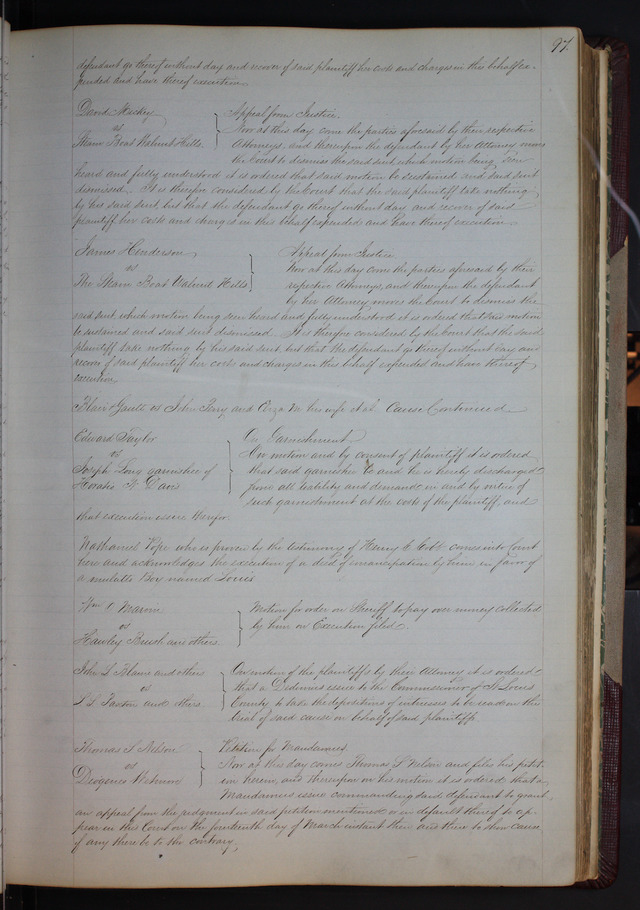 97.
defendant go thereof without day and recover of said plaintiff her costs and charges in this behalf ex-
pended and have thereof execution.
David Mackey
vs
Steam Boat Walnut Hills.
Appeal from Justice.
Now at this day come the parties aforesaid by their respective
Attorneys, and thereupon the defendant by her Attorney moves
the Court to dismiss the said suit, which motion being seen
heard and fully understood it is ordered that said motion be sustained and said suit
dismissed. It is therefore considered by the Court that the said plaintiff take nothing
by his said suit, but that the defendant go thereof without day and recover of said
plaintiff her costs and charges in this behalf expended and have thereof execution.
James Henderson
vs
The Steam Boat Walnut Hills
Appeal from Justice
Now at this day come the parties aforesaid by their
respective Attorneys, and thereupon the defendant
by her Attorney moves the Court to dismiss the
said suit, which motion being seen heard and fully understood it is ordered that said motion
be sustained and said suit dismissed. It is therefore considered by the Court that the said
plaintiff take nothing by his said suit, but that the defendant go thereof without day and
recover of said plaintiff her costs and charges in this behalf expended and have thereof
execution.
vs John and his wife et al. Cause Continued
Edward Taylor
vs
Joseph Long garnishee of
Horatio Davis
On Garnishment
On motion and by consent of plaintiff it is ordered
that said garnishee be and he is hereby discharged
from all liability and demands in and by virtue of
such garnishment at the costs of the plaintiff, and
that execution issue therefor.
Nathaniel Pope who is proven by the testimony of Henry Cobb comes into Court
here and acknowledges the execution of a deed of emancipation by him in favor of
a mulatto Boy named Louis
Wm Marvin
vs
Hawley Brush and others.
Motion for order on Sheriff to pay over money collected
by him on Execution filed.
John L Blaine and others
vs
Paxton and others
On motion of the plaintiffs by their Attorney it is ordered
that a Dedimus issue to the Commissioner of St Louis
County to take the depositions of witnesses to be read on the
trial of said cause on behalf of said plaintiffs.
Thomas S Nelson
vs
Diogenes Wetmore
Petition for Mandamus.
Now at this day comes Thomas S Nelson and files his petit-
ion herein, and thereupon on his motion it is ordered that a
Mandamus issue commanding said defendant to grant
an appeal from the judgment in said petition mentioned or in default thereof to ap-
pear in this Court on the fourteenth day of March instant then and there to show cause
if any there be to the contrary.